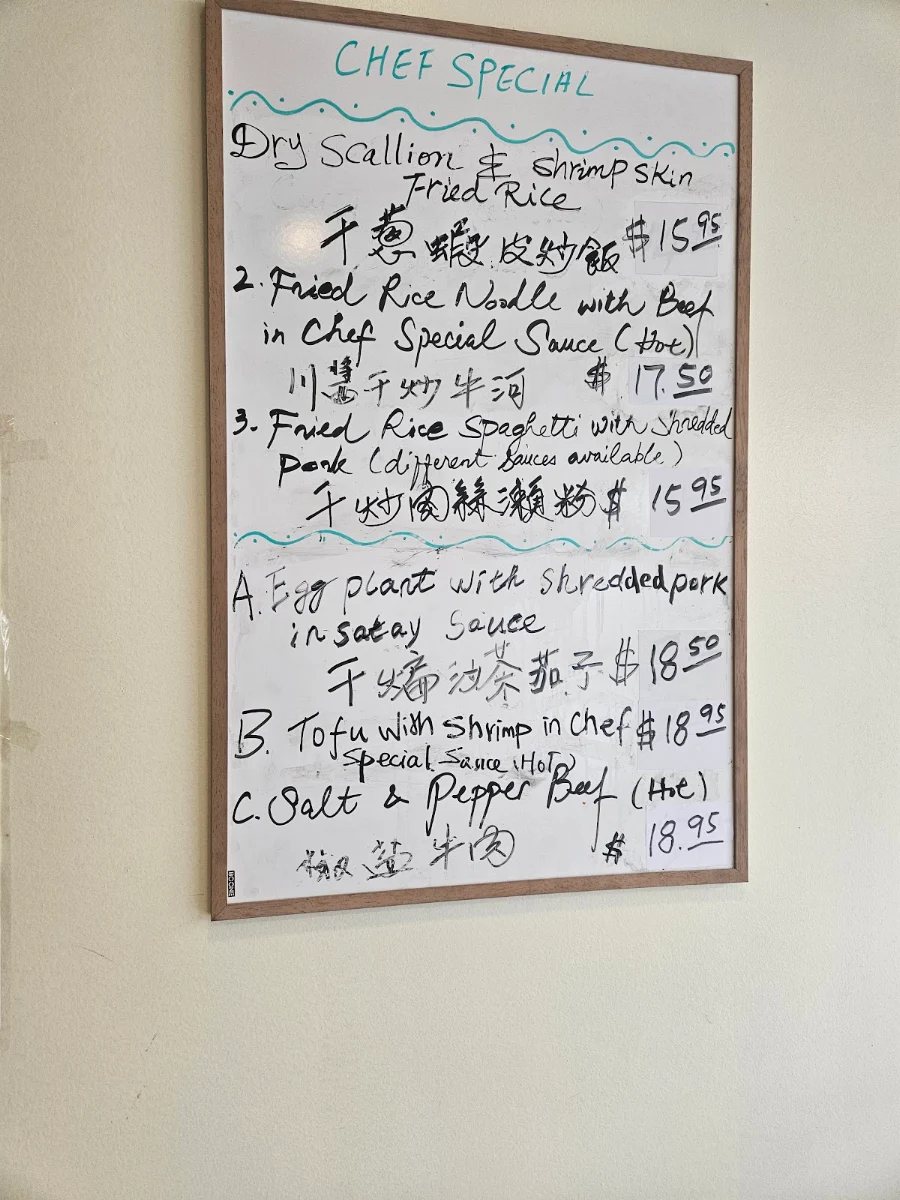 CHEF SPECIAL
Dry Scallion & Shrimp Skin
Fried Rice
干葱蝦皮炒飯 $15.95
2. Fried Rice Noodle with Beef
in Chef Special Sauce (Hot)
川醬干炒牛河 $17.50
3. Fried Rice Spaghetti with Shredded
pork (different Sauces available)
干炒肉絲瀨粉 $15.95
A. Egg plant with shredded pork
in satay Sauce
干煸沙茶茄子 $18.50
B. Tofu with Shrimp in Chef $18.95
Special Sauce (HoT)
C. Salt & Pepper Beef (Hot)
椒盐牛肉 $18.95